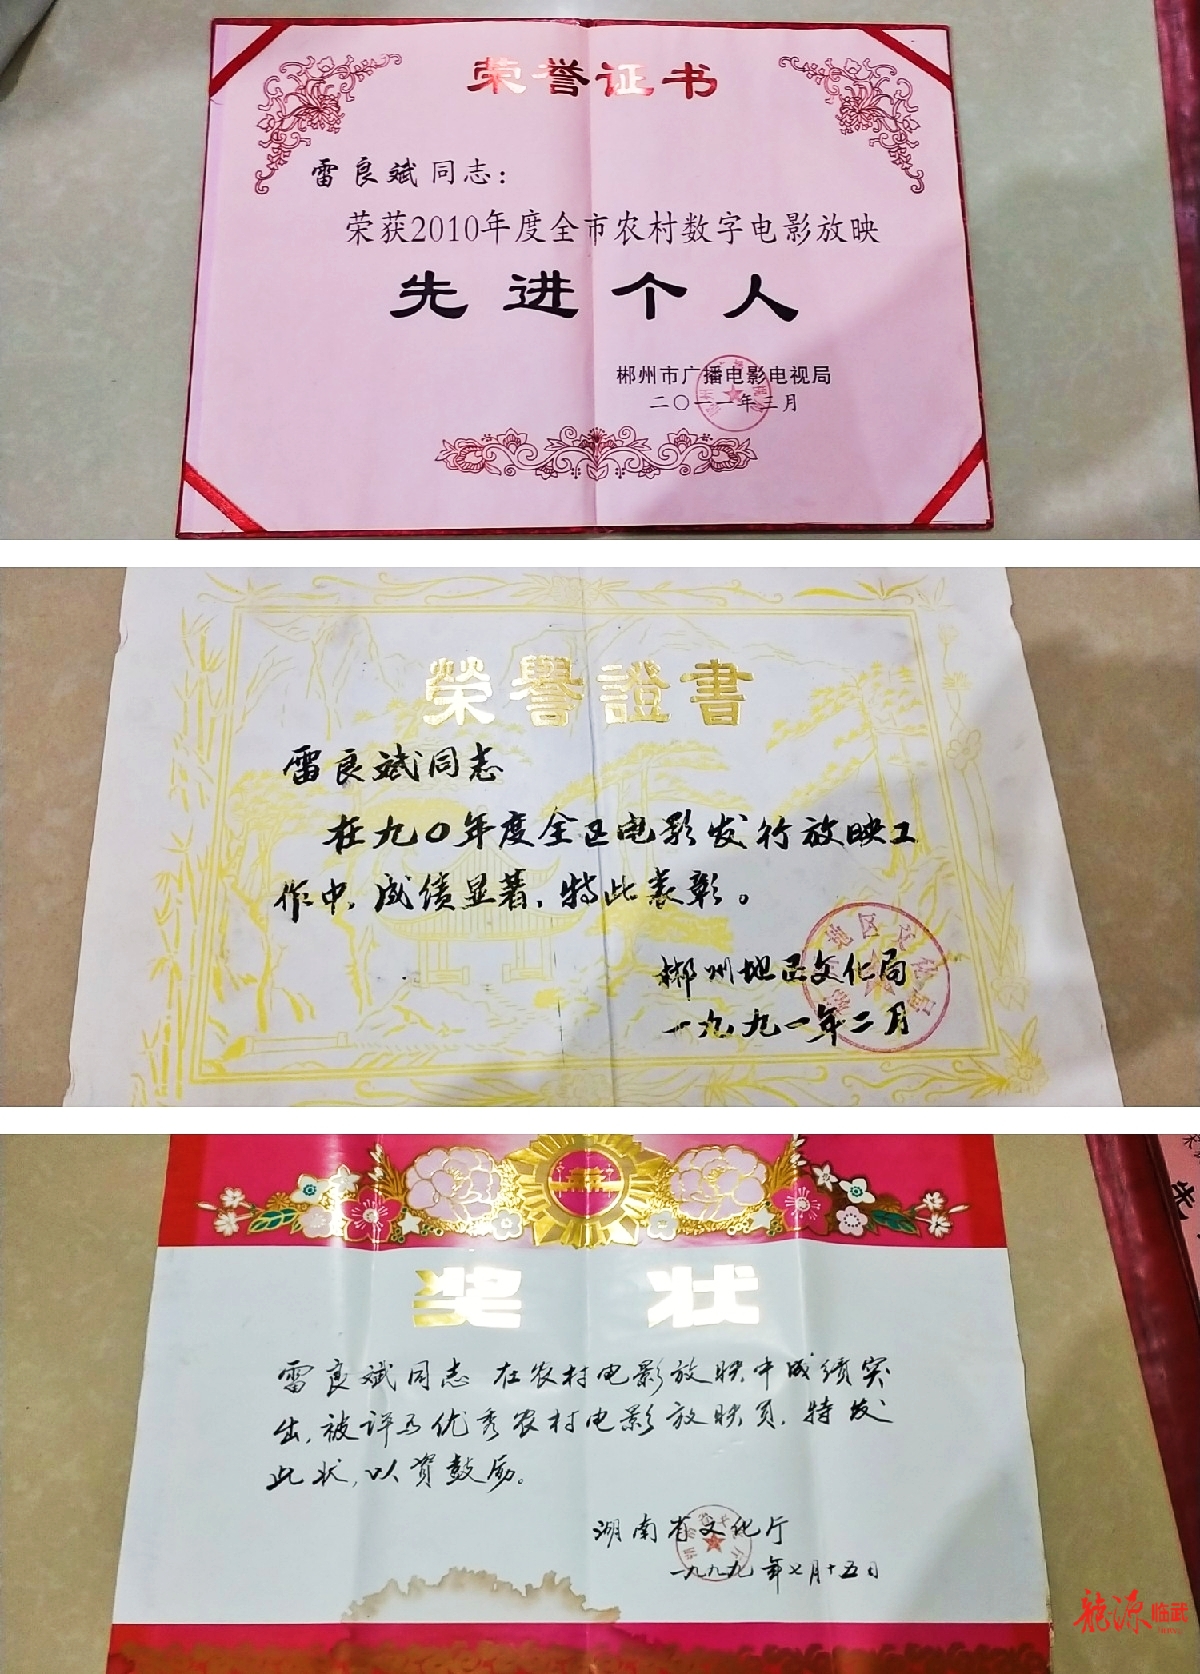 荣誉证书
雷良斌同志：
荣获2010年度全市农村数字电影放映
先进个人
郴州市广播电影电视局
二〇一一年三月
榮譽證書
雷良斌同志
在九〇年度全区电影发行放映工
作中，成绩显著，特此表彰。
郴州地区文化局
一九九一年二月
奖状
雷良斌同志 在农村电影放映中成绩突
出，被评为优秀农村电影放映员，特发
此状，以资鼓励。
湖南省文化厅
一九九九年七月十五日
龙源临武